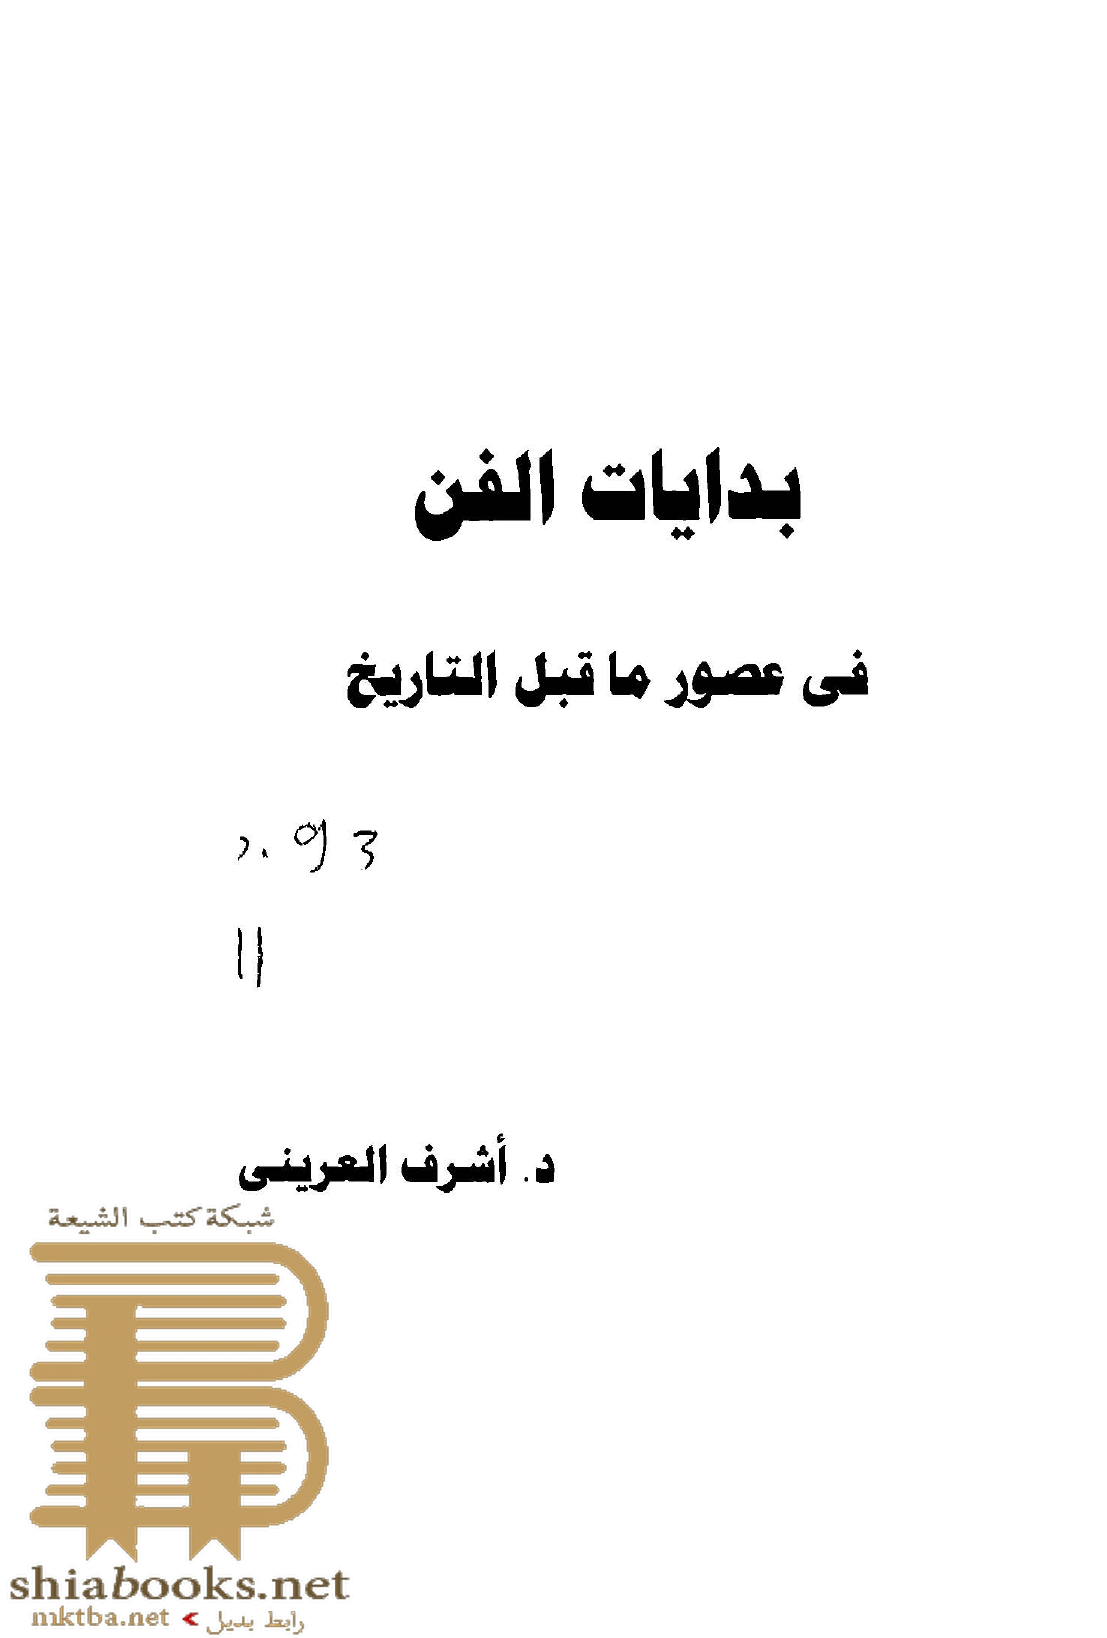 بدايات الفن
فى عصور ما قبل التاريخ
د. أشرف العرينى
شبكة كتب الشيعة
shiabooks.net
mktba.net < رابط بديل